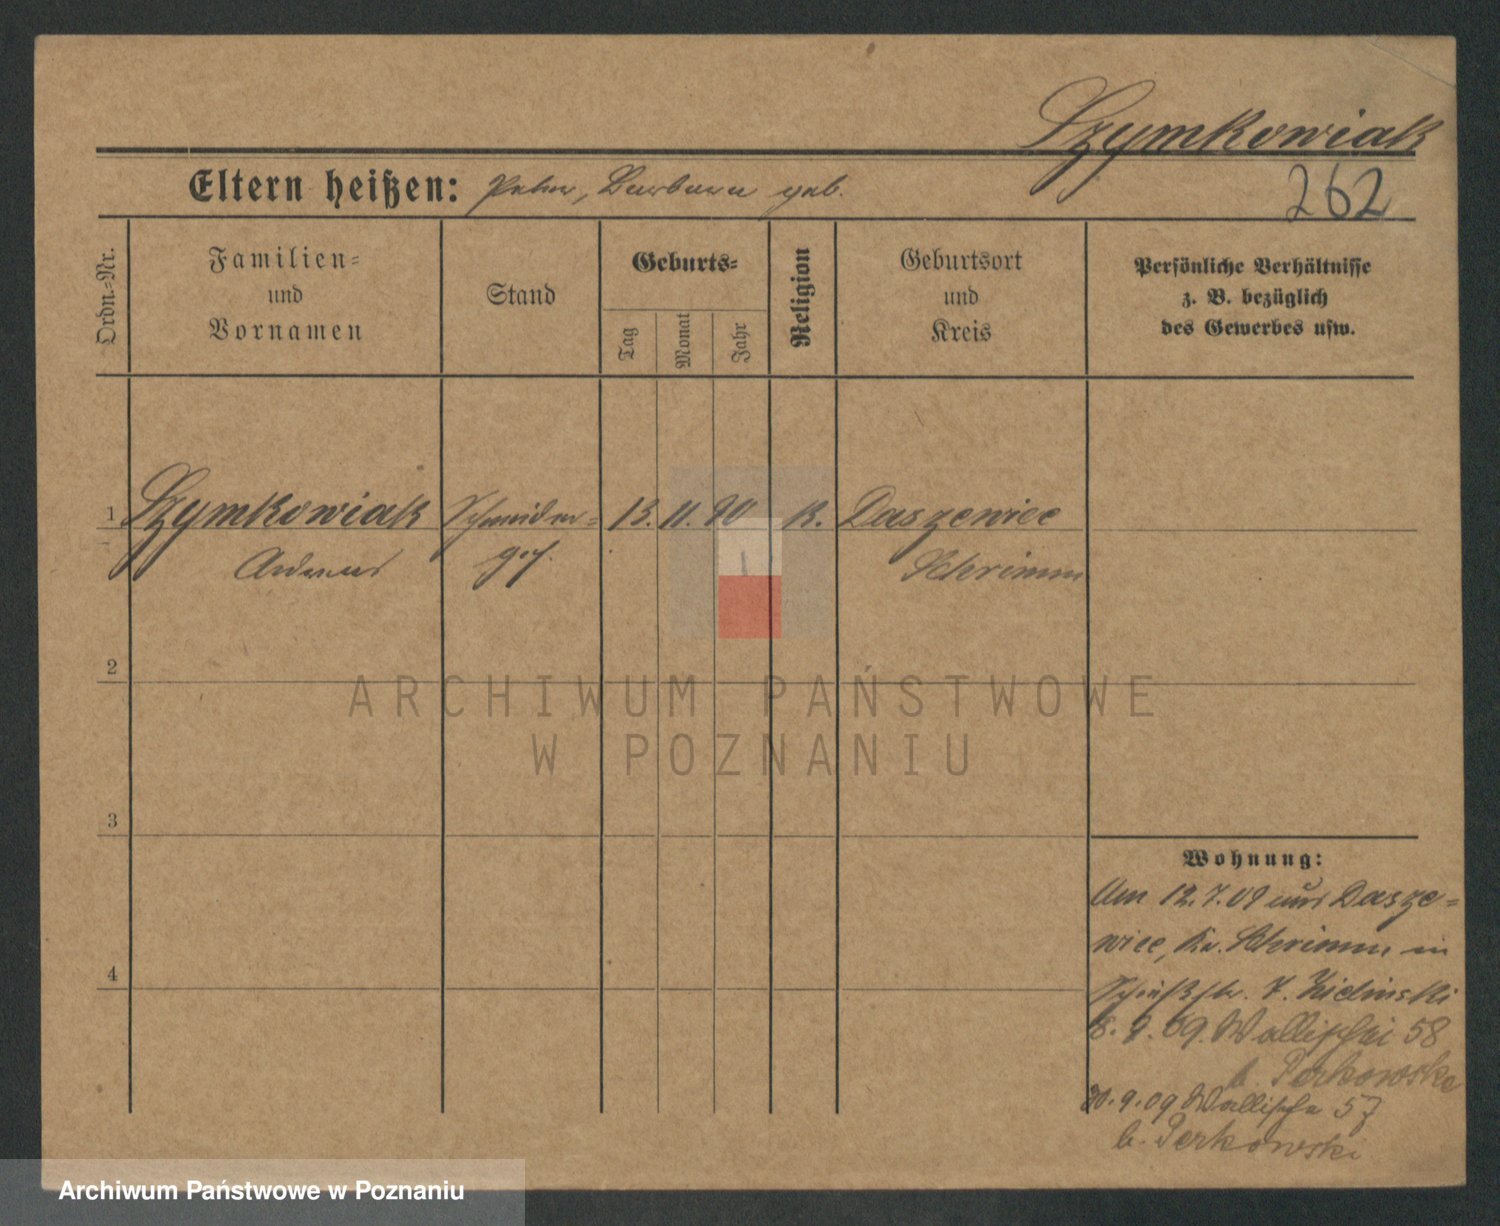 Szymkowiak
Eltern heißen: Peter, Barbara geb.
262
Ordn.-Nr.
Familien-
und
Vornamen
Stand
Geburts-
Tag
Monat
Jahr
Religion
Geburtsort
und
Kreis
Persönliche Verhältnisse
z. B. bezüglich
des Gewerbes usw.
1 Szymkowiak Schneider- 13. 11. 90 K. Daszewice
Andreas ges. Schrimm
2
ARCHIWUM PAŃSTWOWE
W POZNANIU
3
Wohnung:
Am 12.7.09 aus Dasze-
wice, Kr. Schrimm in
Schießstr. 7. Zielinski
8. 9. 09. Wallischei 58
b. Perkowski
20.9.09 Wallische 57
b. Perkowski
4
Archiwum Państwowe w Poznaniu